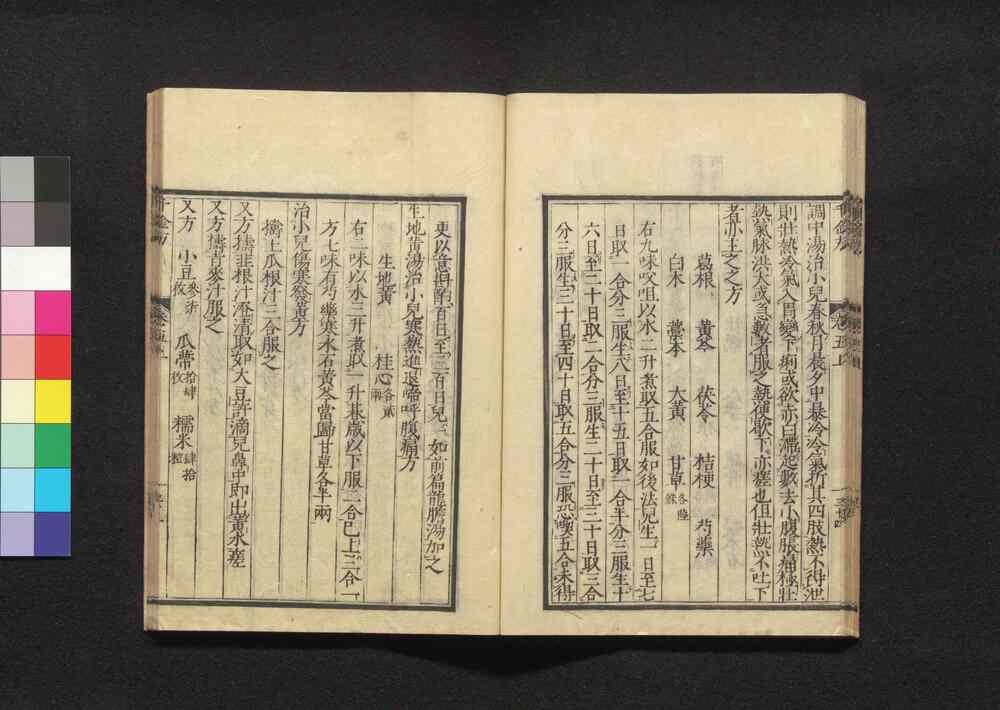 調中湯治小兒春秋月晨夕中暴冷冷氣折其四肢熱不得泄
則壯熱冷氣入胃變下痢或欲赤白滯起數去小腹脹痛極壯
熱氣脉洪大或急數者服之熱便歇下亦瘥也但壯熱不吐下
者亦主之之方
葛根 黃芩 茯苓 桔梗 芍藥
白朮 藁本 大黃 甘草各陸銖
右九味㕮咀以水二升煮取五合服如後法兒生一日至七
日取一合分三服生八日至十五日取一合半分三服生十
六日至二十日取二合分三服生二十日至三十日取三合
分三服生三十日至四十日取五合分三服恐喫五合未得
更以意斟酌百日至三百日兒一如前篇龍膽湯加之
生地黃湯治小兒寒熱進退啼呼腹痛方
生地黃 桂心各貳兩
右二味以水三升煮取一升朞歲以下服二合已上三合一
方七味有芍藥寒水石黃芩當歸甘草各半兩
治小兒傷寒發黃方
擣土瓜根汁三合服之
又方擣韭根汁澄清取如大豆許滴兒鼻中即出黃水瘥
又方擣青麥汁服之
又方 小豆參柒枚 瓜蒂拾肆枚 糯米肆拾粒
千金方
卷五上